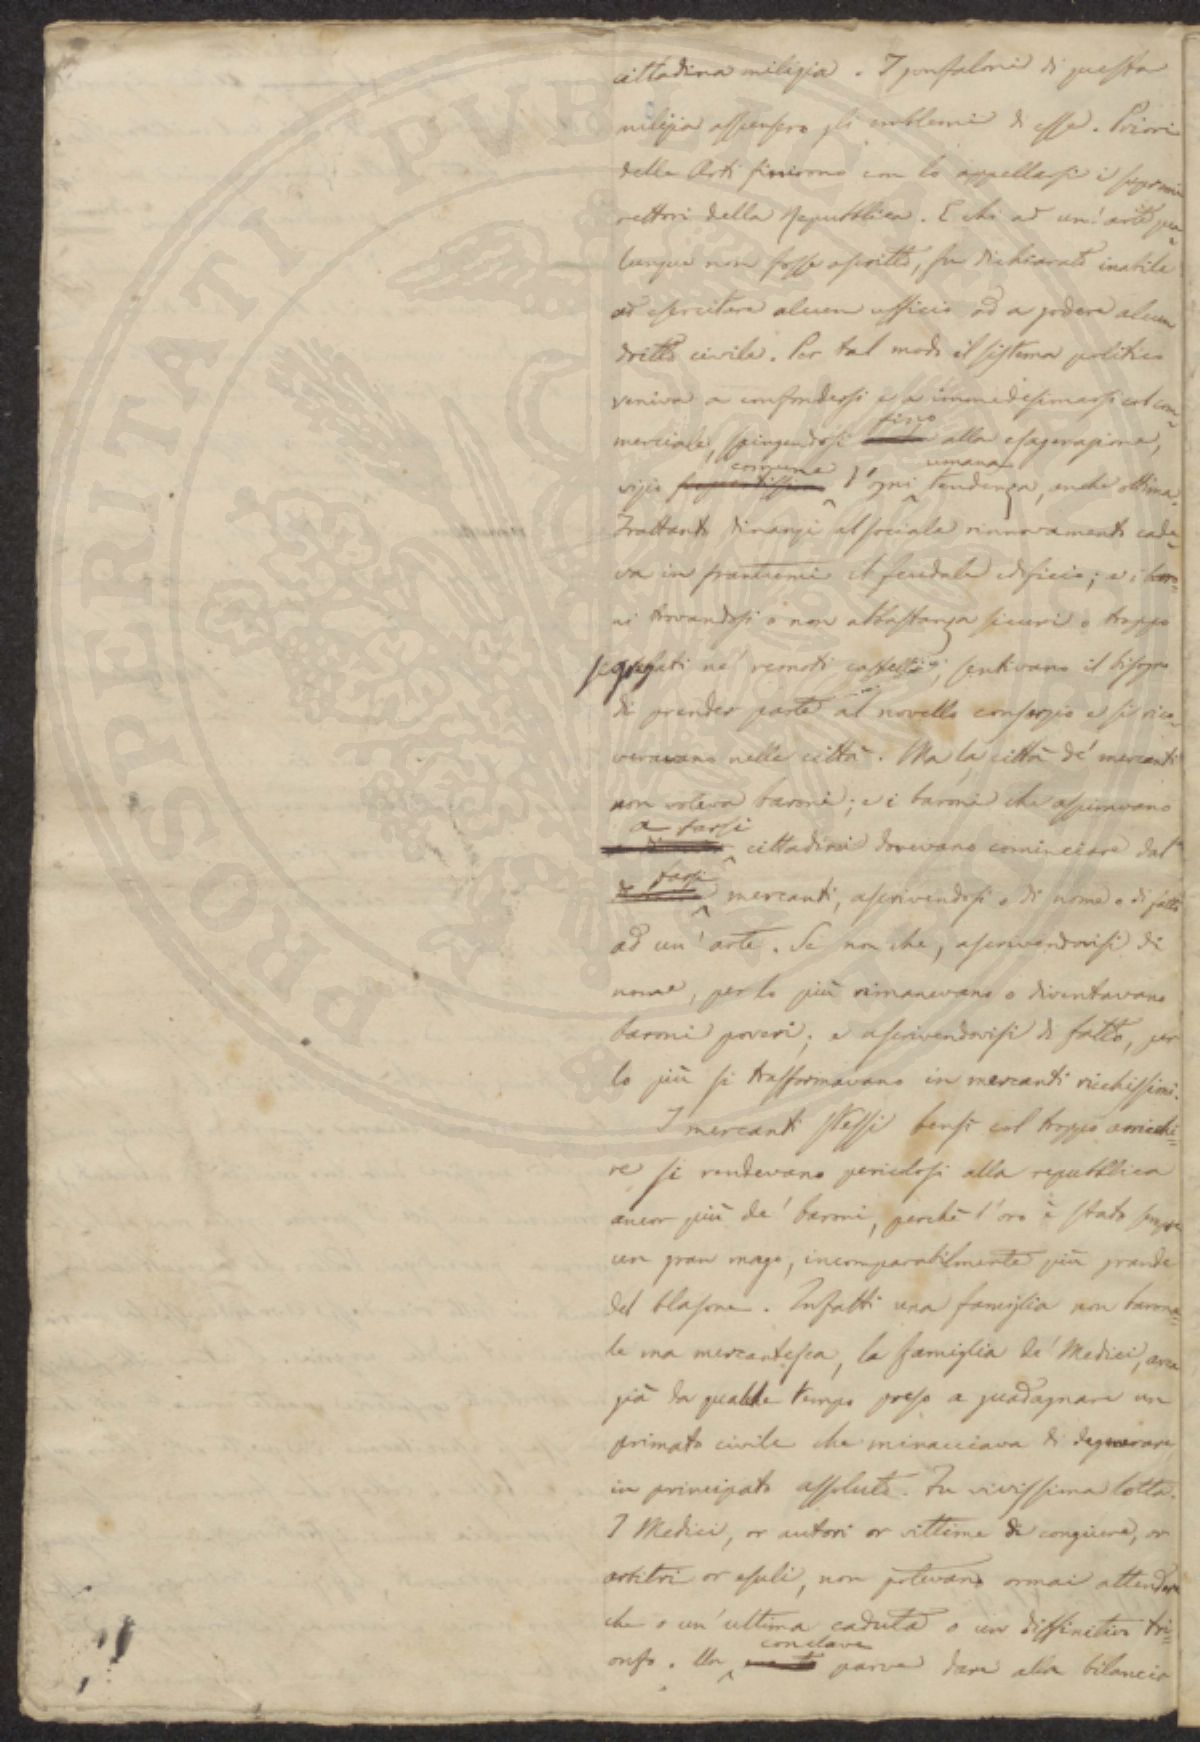 cittadina milizia. I gonfaloni di questa
milizia assunsero gli emblemi di esse. Priori
delle Arti finirono con lo appellarsi i supremi
rettori della Repubblica. E chi ad un'arte qua-
lunque non fosse ascritto, fu dichiarato inabile
ad esercitare alcun ufficio od a godere alcun
dritto civile. Per tal modo il sistema politico
veniva a confondersi e a immedesimarsi col com-
merciale, spingendosi fino alla esagerazione,
vizio comune d'ogni umana tendenza, anche ottima.
Frattanto dinanzi al sociale rinnovamento cade-
va in frantumi il feudale edificio; e i baro-
ni trovandosi o non abbastanza sicuri o troppo
segregati ne' remoti castelli, sentivano il bisogno
di prender parte al novello consorzio e si rico-
veravano nelle città. Ma la città de' mercanti
non voleva baroni; e i baroni che aspiravano
a farsi cittadini dovevano cominciare dal
farsi mercanti, ascrivendosi o di nome o di fatto
ad un'arte. Se non che, ascrivendovisi di
nome, per lo più rimanevano o diventavano
baroni poveri; e ascrivendovisi di fatto, per
lo più si trasformavano in mercanti ricchissimi.
I mercanti stessi bensì col troppo arricchi-
re si rendevano pericolosi alla repubblica
ancor più de' baroni, perchè l'oro è stato sempre
un gran mago, incomparabilmente più grande
del blasone. Infatti una famiglia non barona-
le ma mercantesca, la famiglia de' Medici, avea
già da qualche tempo preso a guadagnare un
primato civile che minacciava di degenerare
in principato assoluto. Fu vivissima lotta.
I Medici, or autori or vittime di congiure, or
arbitri or esuli, non potevano ormai attendere
che o un'ultima caduta o un diffinitivo tri-
onfo. Un conclave parve dare alla bilancia
PROSPERITATI PVBLICAE